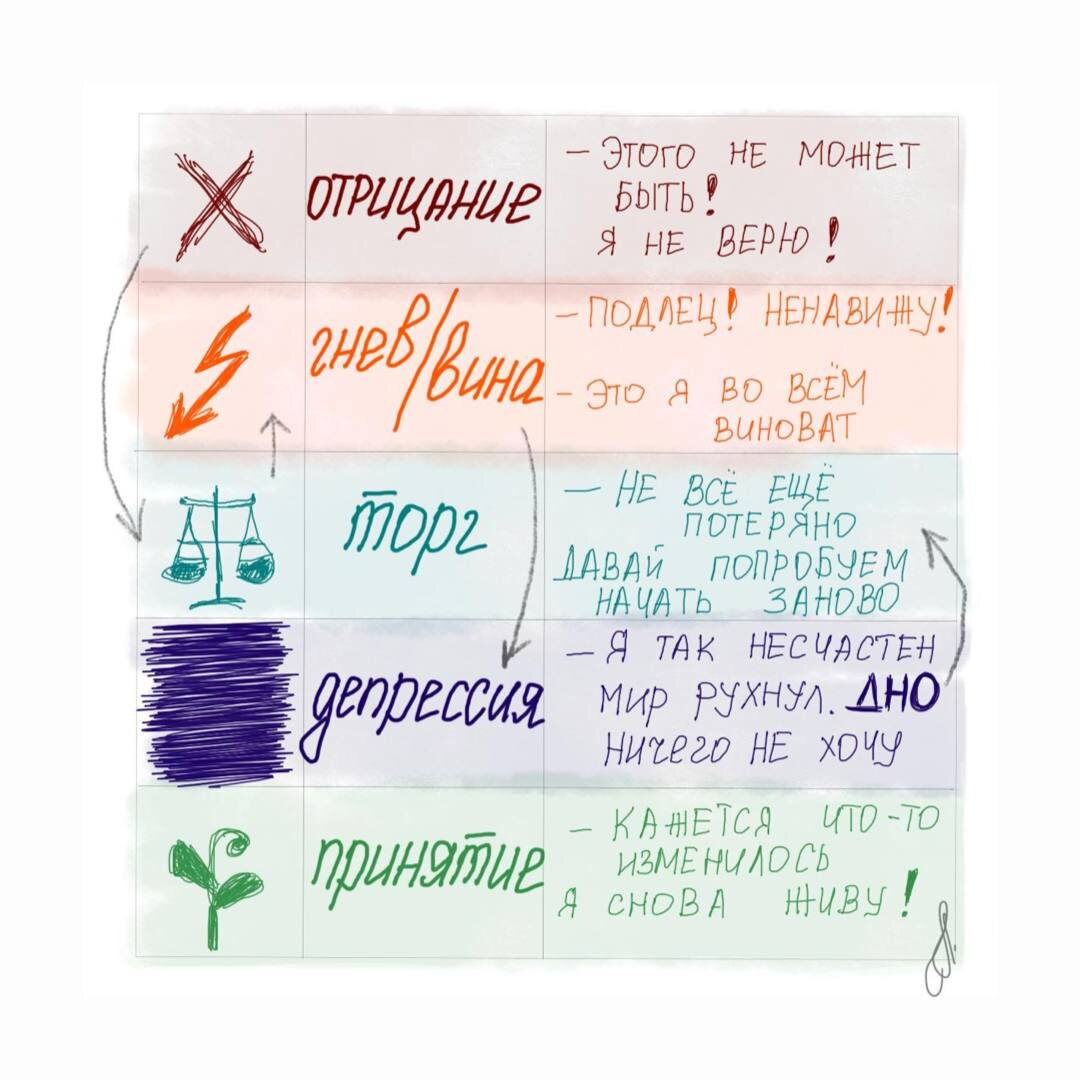 ОТРИЦАНИЕ
— ЭТОГО НЕ МОЖЕТ
БЫТЬ!
Я НЕ ВЕРЮ!
гнев/вина
— ПОДЛЕЦ! НЕНАВИЖУ!
— ЭТО Я ВО ВСЁМ
ВИНОВАТ
торг
— НЕ ВСЁ ЕЩЁ
ПОТЕРЯНО
ДАВАЙ ПОПРОБУЕМ
НАЧАТЬ ЗАНОВО
депрессия
— Я ТАК НЕСЧАСТЕН
МИР РУХНУЛ. ДНО
НИЧЕГО НЕ ХОЧУ
принятие
— КАЖЕТСЯ ЧТО-ТО
ИЗМЕНИЛОСЬ
Я СНОВА ЖИВУ!